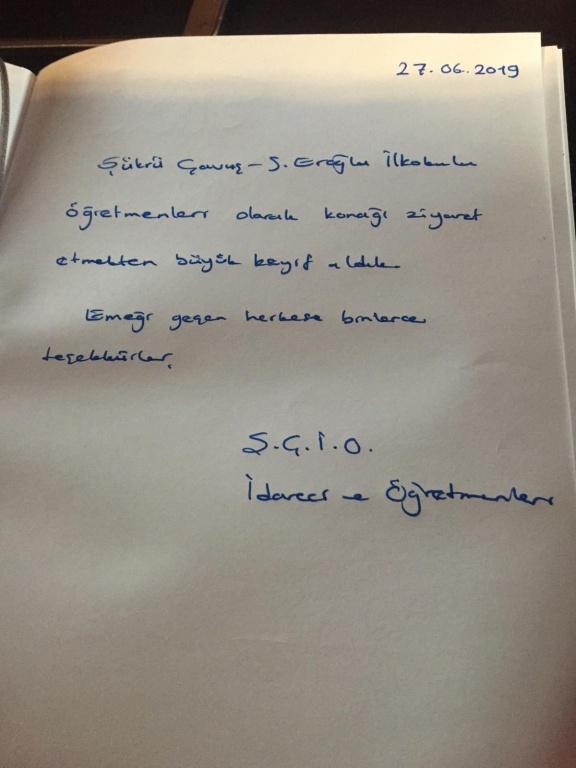 27.06.2019
Şükrü Çavuş - S. Eroğlu İlkokulu
öğretmenleri olarak konağı ziyaret
etmekten büyük keyif aldık.
Emeği geçen herkese binlerce
teşekkürler.
Ş.Ç.İ.O.
İdareci ve Öğretmenleri